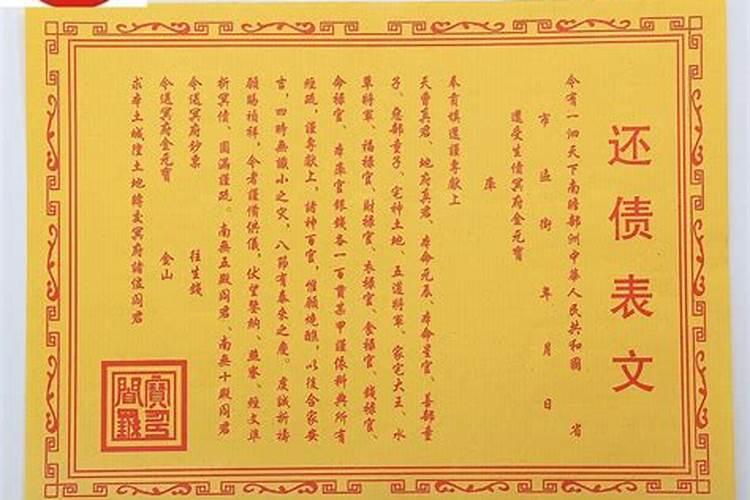 还债表文
今有一泗天下南瞻部洲中華人民共和國 省
市 區 街 年 月 日
還受生債冥府金元寶
庫
奉看填還謹專獻上
天曹真君、地府真君、本命元辰、本命星官、善部童
子、惡部童子、宅神土地、五道將軍、家宅大王、水
草將軍、福祿官、財祿官、衣祿官、食祿官、錢祿官、
命祿官、本庫官銀錢各一百貫某甲謹依科典所有
經疏，謹專獻上，諸神百官，惟願燒醮，以後合家安
吉，四時無纖小之災，八節有泰來之慶。虔誠祈禱
願賜禎祥，今者謹備供儀，伏望鑒納、燕寥、經文準
折冥債、圓滿謹疏。南無五殿阎君、南無十殿阎君
今送冥府鈔票 往生錢
今送冥府金元寶 金山
求本土城隍土地轉交冥府諸位阎君